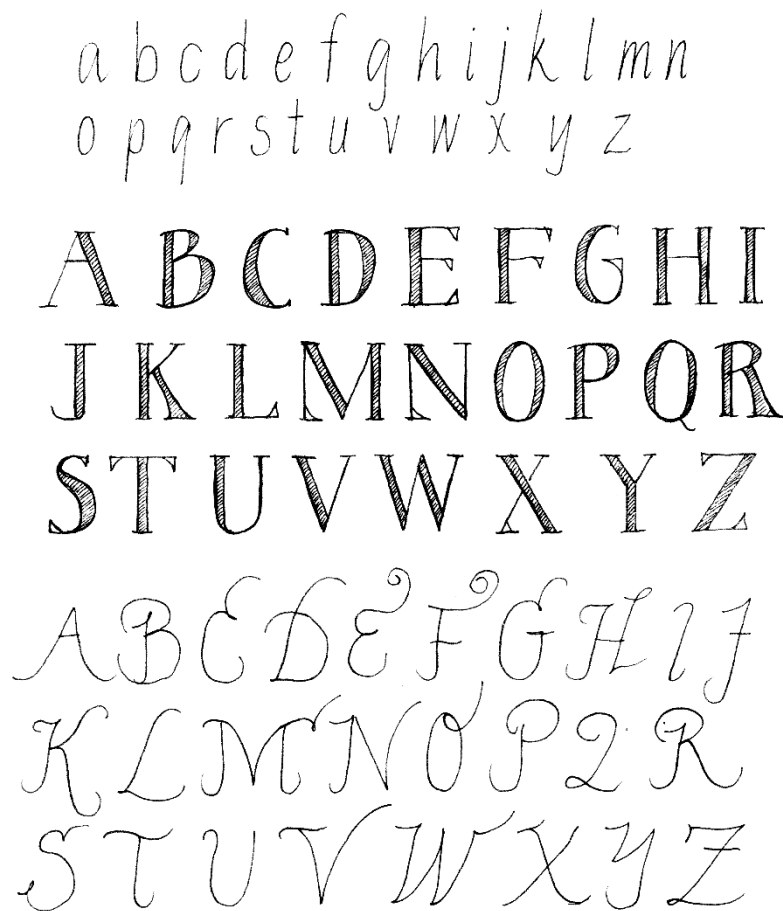 a b c d e f g h i j k l m n
o p q r s t u v w x y z
A B C D E F G H I
J K L M N O P Q R
S T U V W X Y Z
A B C D E F G H I J
K L M N O P Q R
S T U V W X Y Z